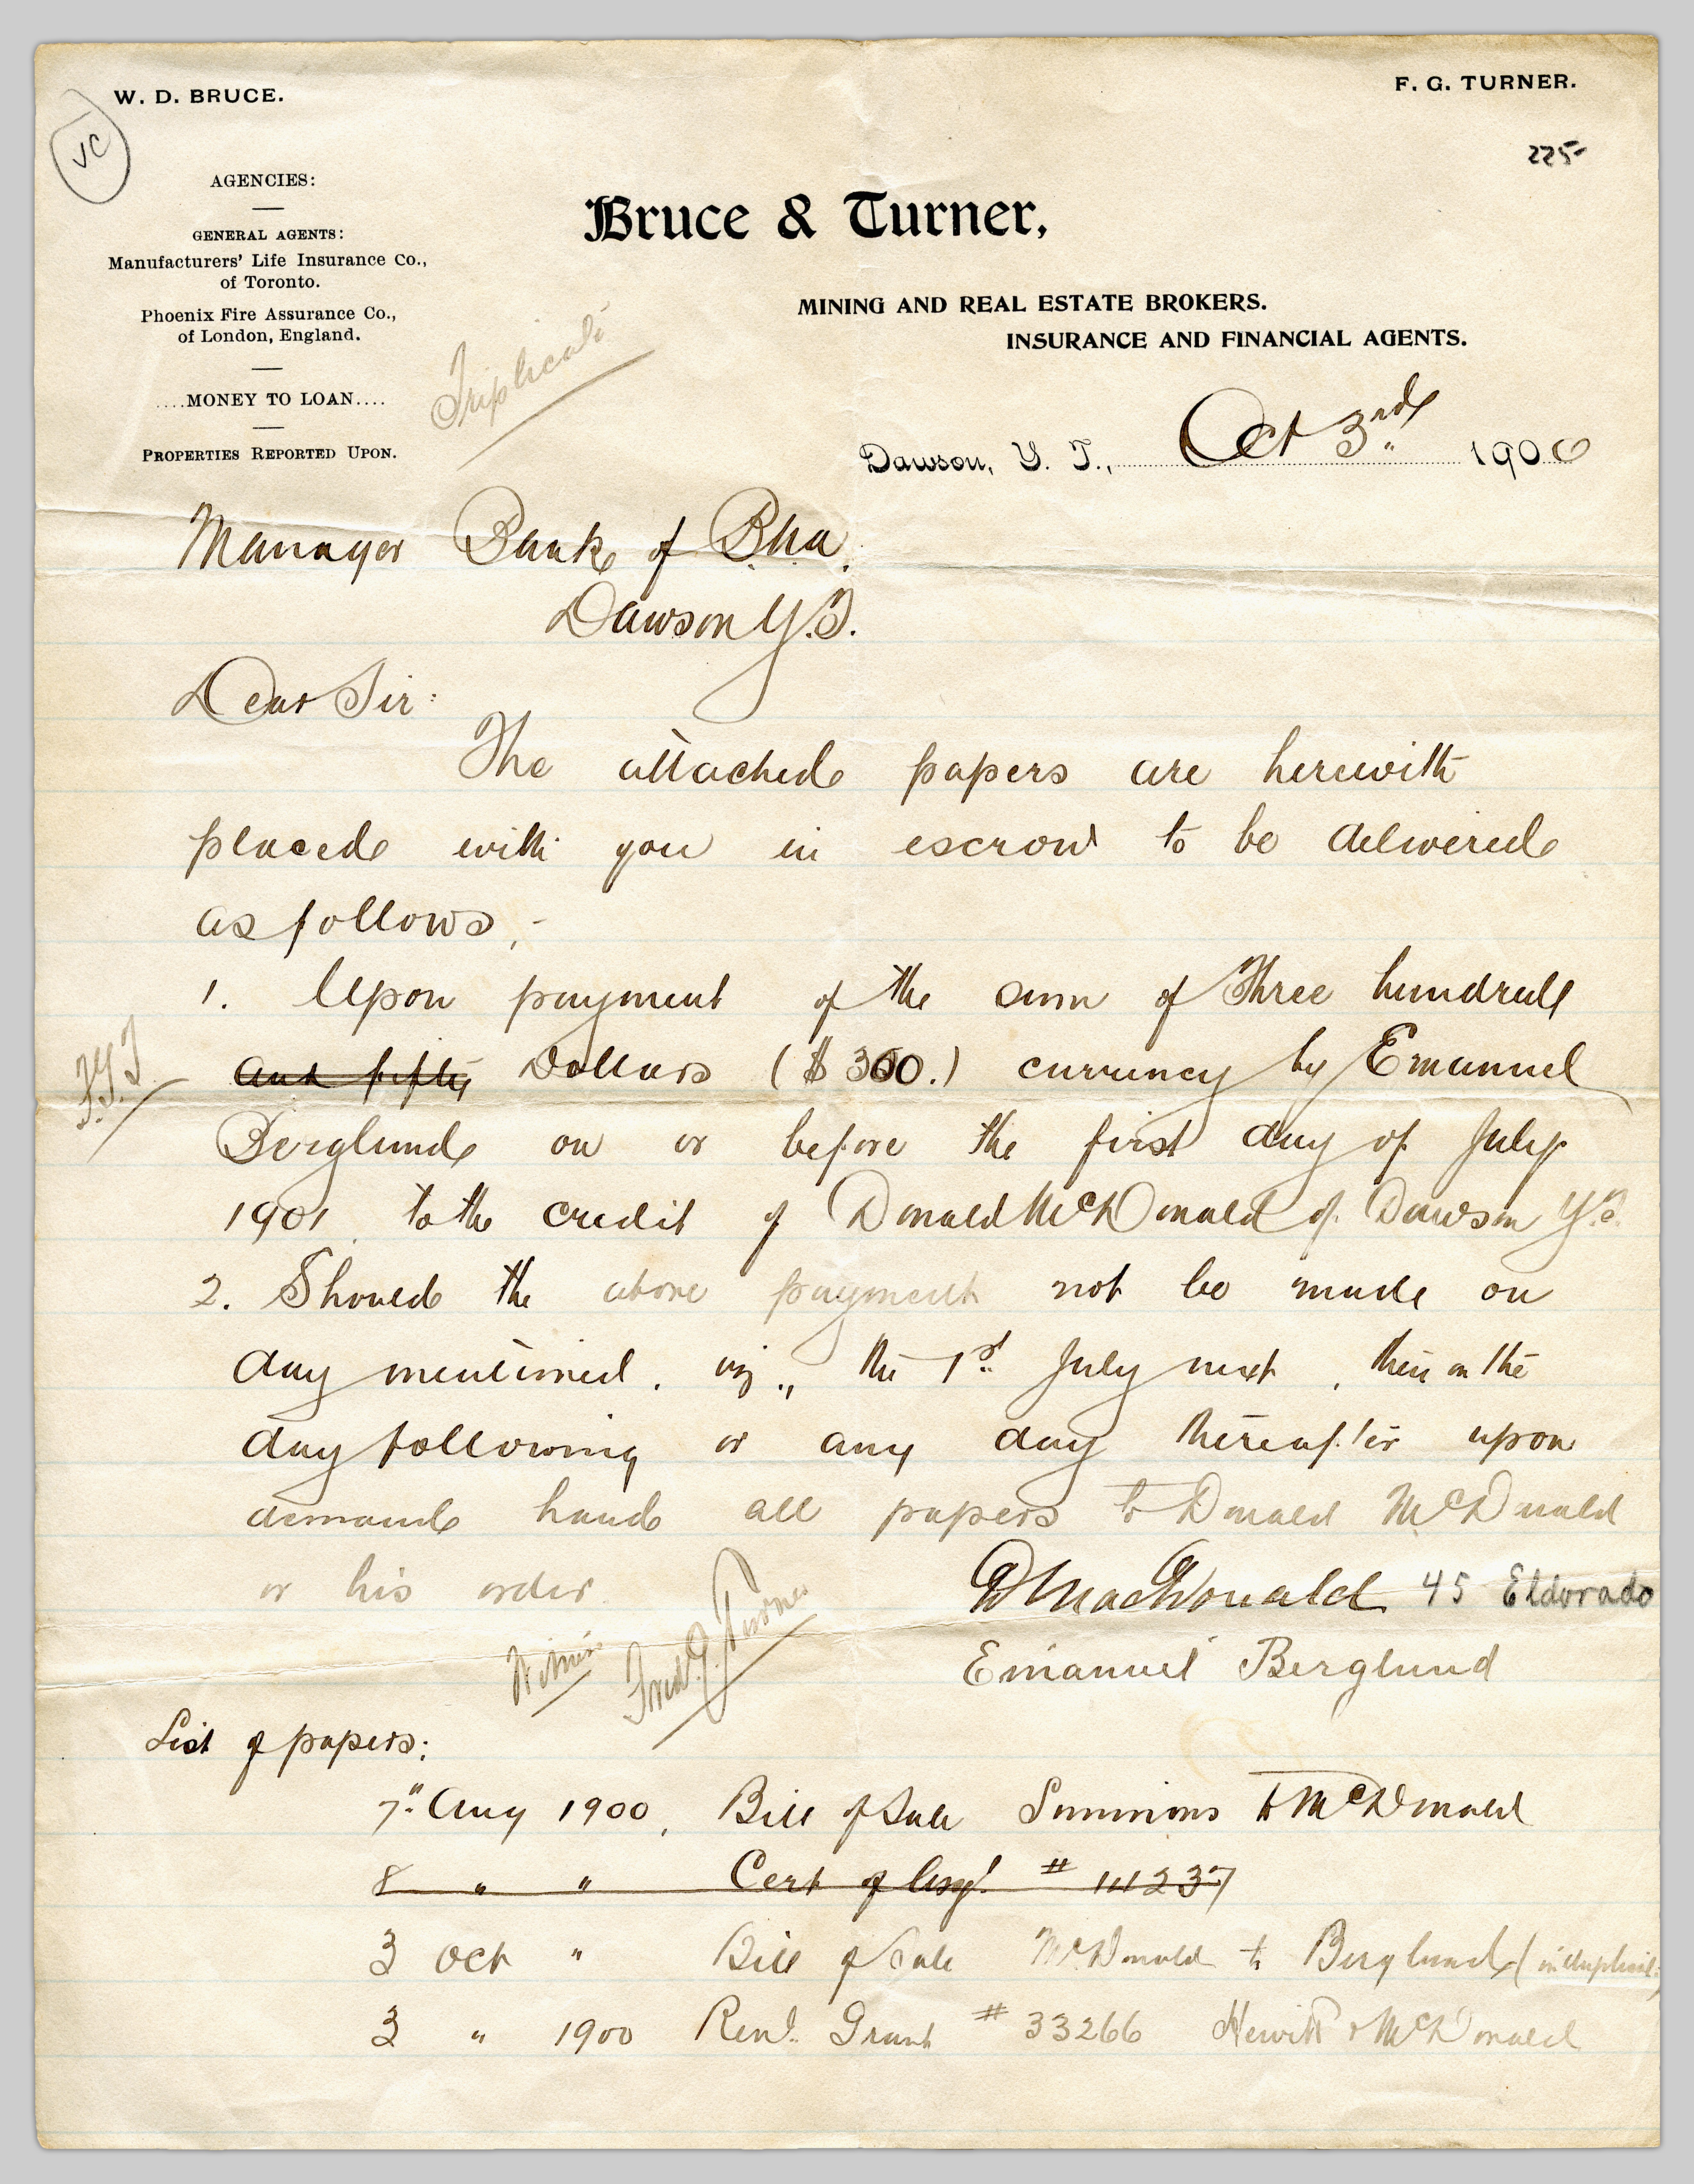 W. D. BRUCE.
F. G. TURNER.
225-
AGENCIES:
GENERAL AGENTS:
Manufacturers' Life Insurance Co.,
of Toronto.
Phoenix Fire Assurance Co.,
of London, England.
....MONEY TO LOAN....
PROPERTIES REPORTED UPON.
Bruce & Turner,
MINING AND REAL ESTATE BROKERS.
INSURANCE AND FINANCIAL AGENTS.
Triplicate
Dawson, Y. T., Oct 3rd 1900
Manager Bank of B.N.A.
Dawson Y.T.
Dear Sir:
The attached papers are herewith
placed with you in escrow to be delivered
as follows,-
1. Upon payment of the sum of Three hundred
F.G.T and fifty Dollars ($300.) currency by Emanuel
Berglund on or before the first day of July
1901 to the credit of Donald McDonald of Dawson Y.T.
2. Should the above payment not be made on
day mentioned, viz., the 1st July next, then on the
day following or any day thereafter upon
demand hand all papers to Donald McDonald
or his order
D MacDonald 45 Eldorado
Witness Fred. G. Turner
Emanuel Berglund
List of papers:
7" Aug 1900, Bill of Sale Simmons to McDonald
8 " " Cert of Asgt # 11237
3 Oct " Bill of Sale McDonald to Berglund (in duplicate)
3 " 1900 Renl. Grant # 33266 Hewitt & McDonald